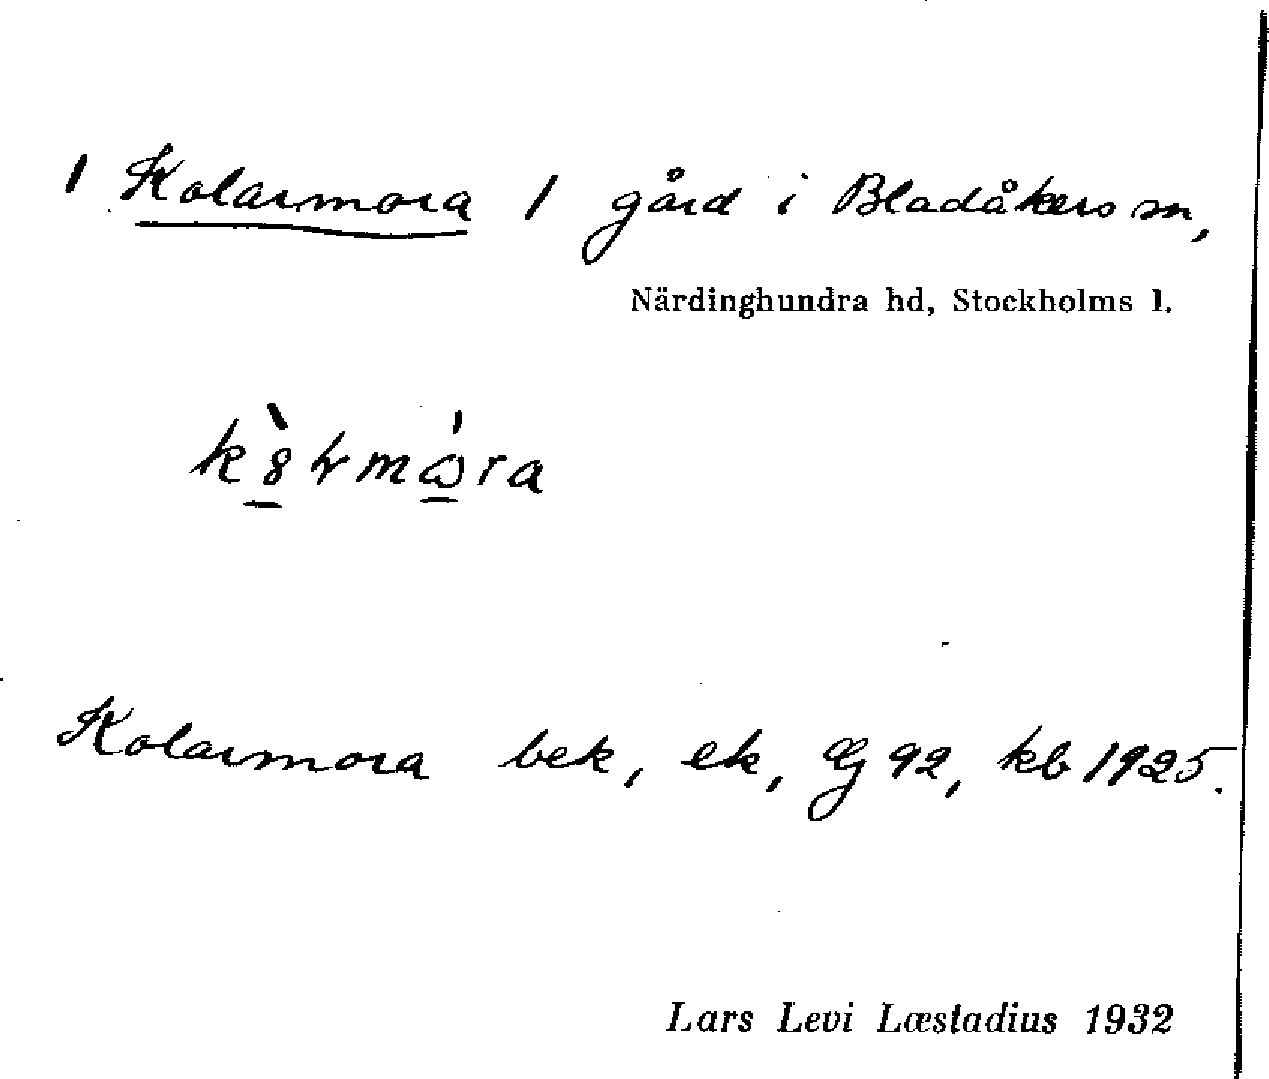 1 Kolarmora / gård i Bladåkers sn,
Närdinghundra hd, Stockholms l.
Kolarmora bek, ek, Æj 92, kb 1925.
Lars Levi Læstadius 1932